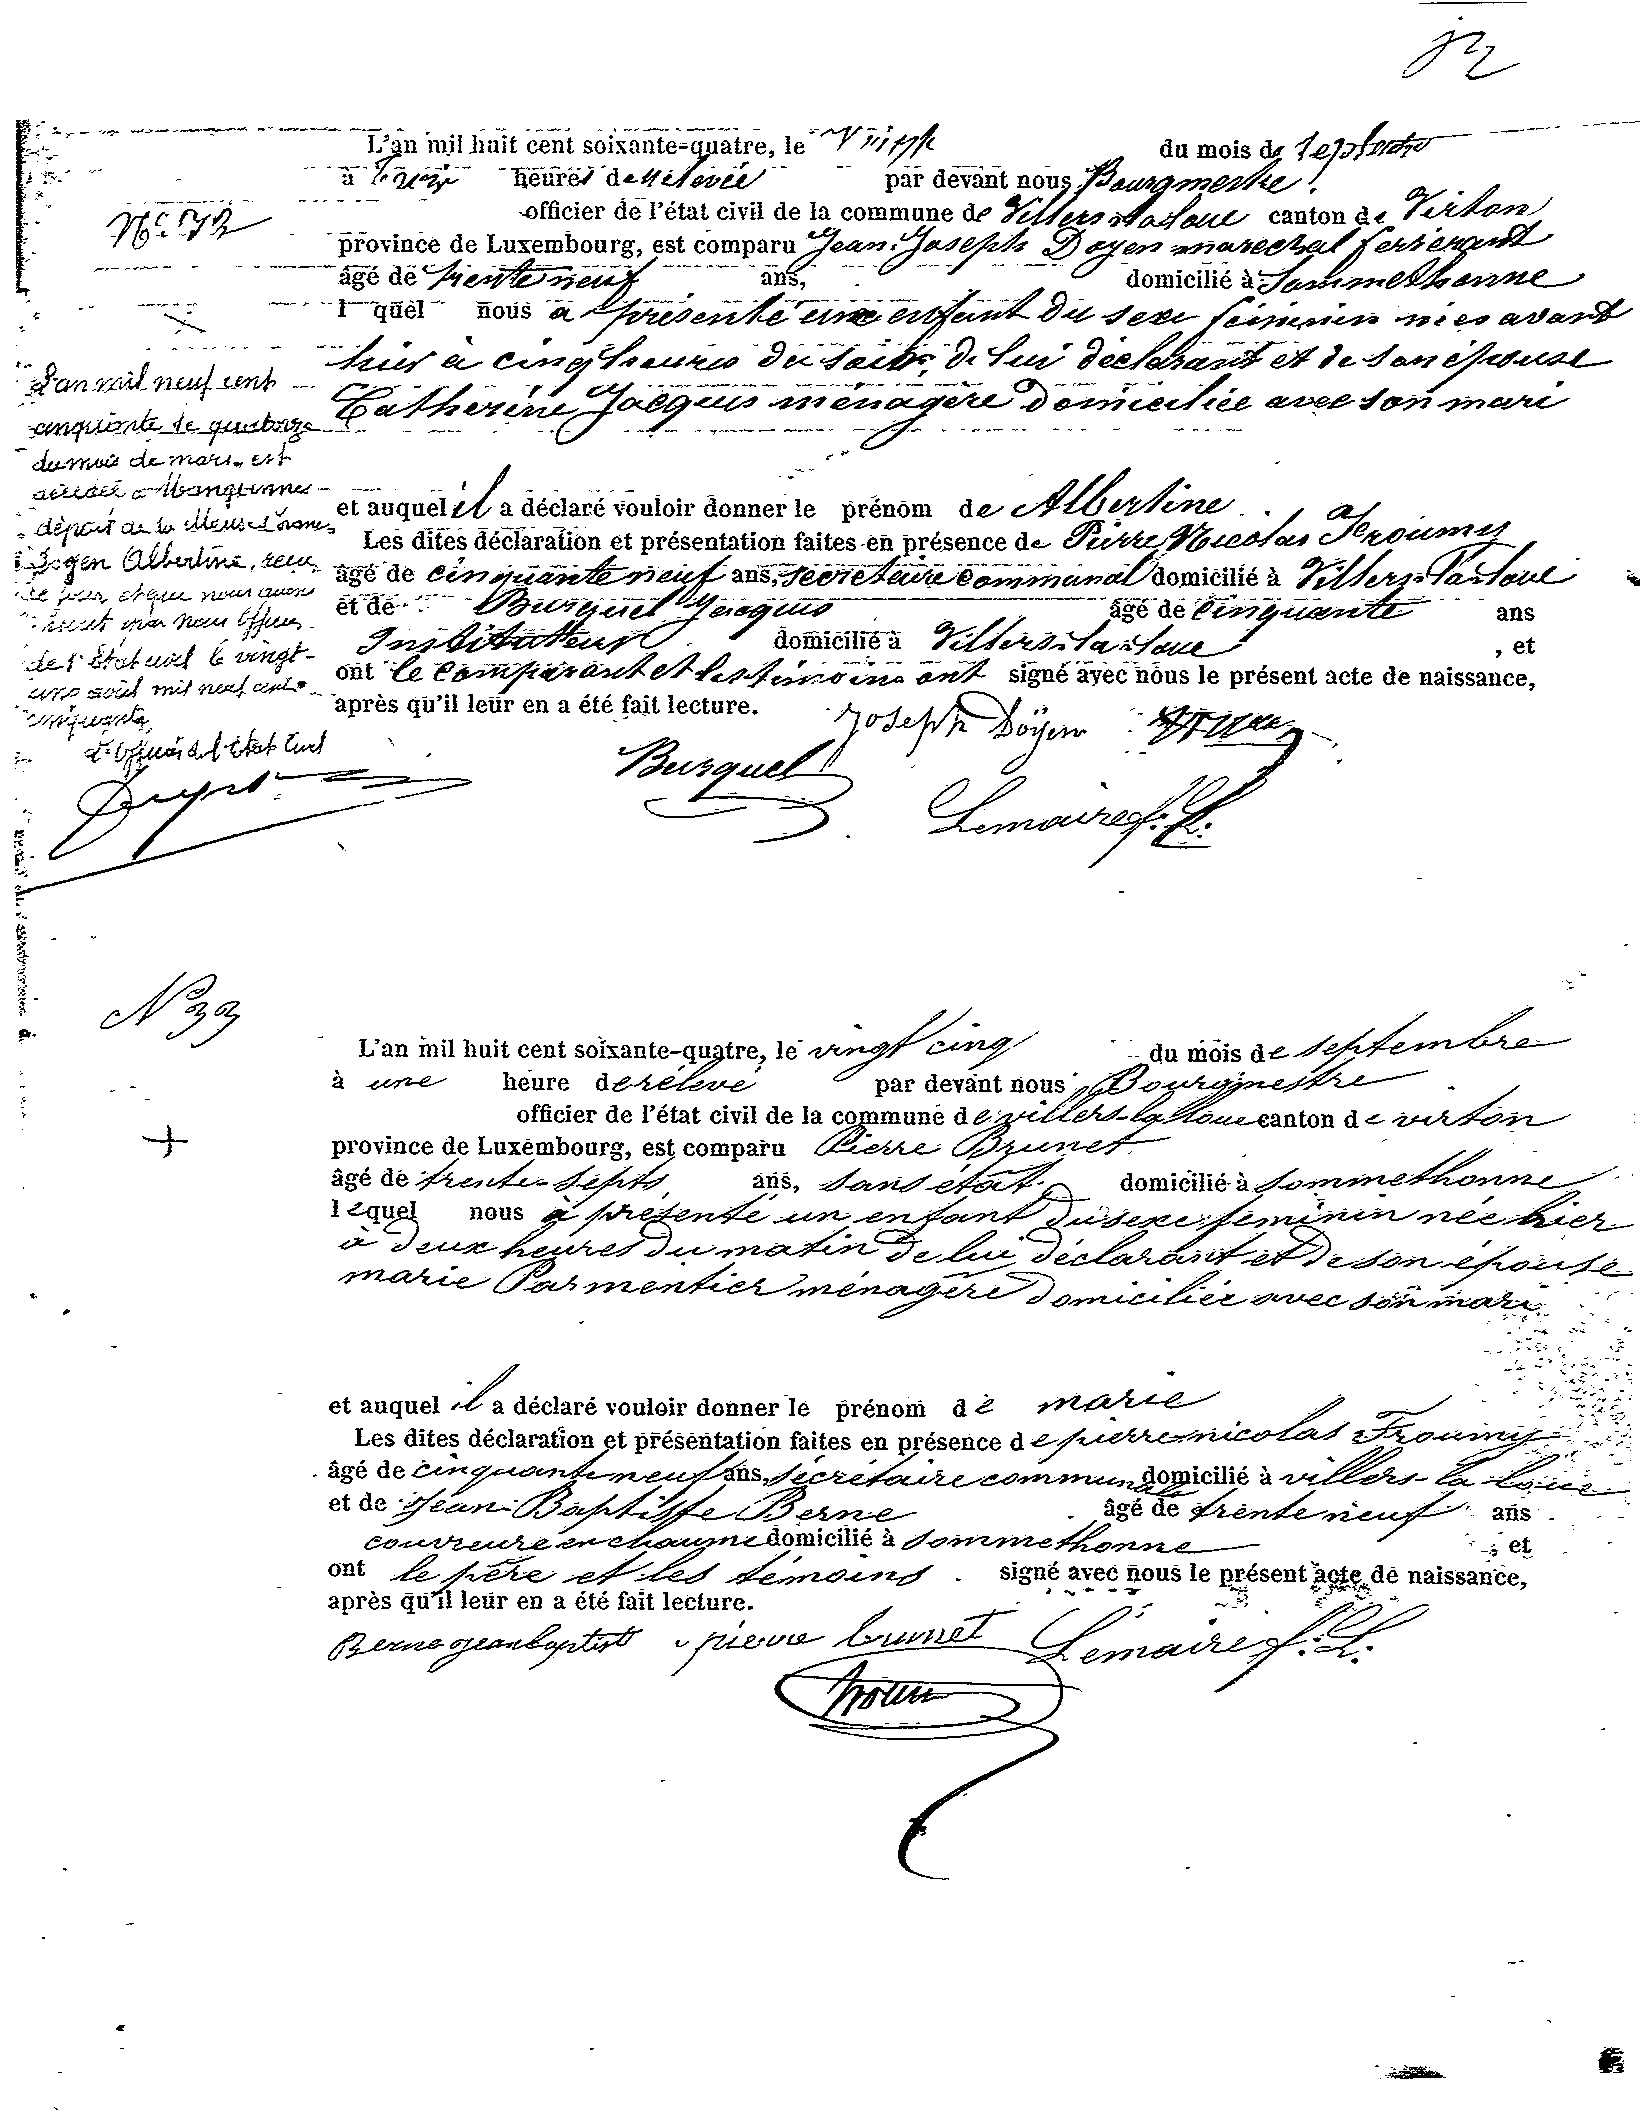 L'an mil huit cent soixante-quatre, le Vingt du mois de septembre
à trois heures de relevée par devant nous Bourgmestre
officier de l'état civil de la commune de Villers-la-loue canton de Virton
province de Luxembourg, est comparu Jean-Joseph Doyen marechal ferrerant
âgé de trente neuf ans, domicilié à Sommethonne
l quel nous a présenté un enfant du sexe féminin née avant
hier à cinq heures du soir, de lui déclarant et de son épouse
Catherine Jacques ménagère domiciliée avec son mari
et auquel il a déclaré vouloir donner le prénom de Albertine
Les dites déclaration et présentation faites en présence de Pierre Nicolas Froumy
âgé de cinquante neuf ans, secretaire communal domicilié à Villers-la-loue
et de Burquel Jacques âgé de cinquante ans
Instituteur domicilié à Villers-la-loue , et
ont le comparant et les témoins ont signé avec nous le présent acte de naissance,
après qu'il leur en a été fait lecture.
Joseph Doyen
Burquel
Lemaire f. L.
N° 32
L'an mil neuf cent
cinquante le quatorze
du mois de mars, est
décédée à Mangiennes
départ de la Meuse France
Doyen Albertine,
de l'Etat civil le vingt-
août mil neuf cent
cinquante
L'officier de l'Etat Civil
N 33
L'an mil huit cent soixante-quatre, le vingt cinq du mois de septembre
à une heure de rélevé par devant nous Bourgmestre
officier de l'état civil de la commune de villers-la loue canton de virton
province de Luxembourg, est comparu Pierre Brunet
âgé de trente-septs ans, sans état, domicilié à sommethonne
lequel nous a présenté un enfant du sexe féminin née hier
à deux heures du matin de lui déclarant et de son épouse
marie Parmentier ménagère domiciliée avec son mari
et auquel il a déclaré vouloir donner le prénom de marie
Les dites déclaration et présentation faites en présence de pierre nicolas Froumy
âgé de cinquante neuf ans, sécrétaire communal domicilié à villers-la loue
et de Jean-Baptiste Berne âgé de trente neuf ans
couvreure en chaume domicilié à sommethonne , et
ont le père et les témoins signé avec nous le présent acte de naissance,
après qu'il leur en a été fait lecture.
Berne jean baptist pierre brunet Lemaire f. L.